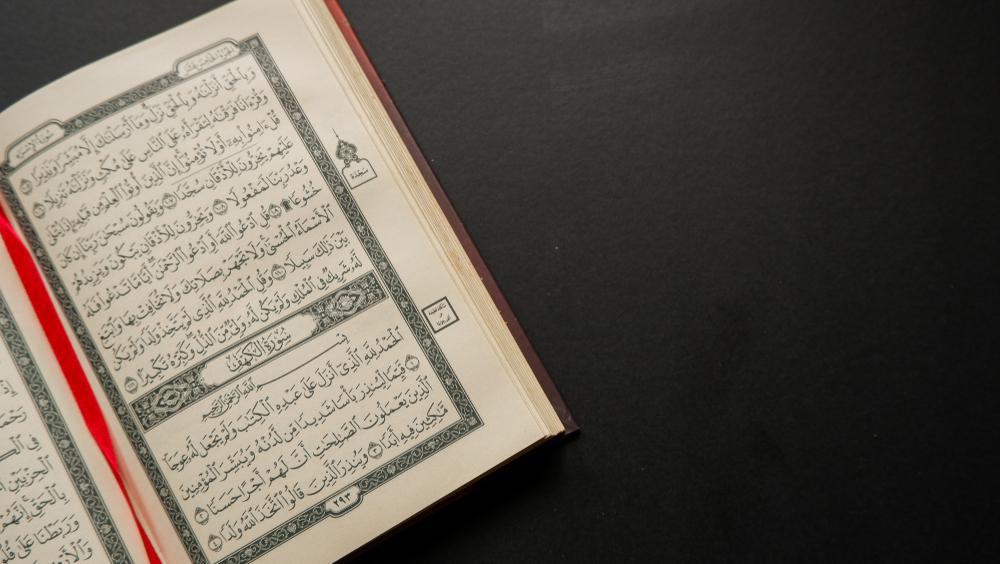 الجزء الخامس عشر
سورة الإسراء
وَبِالْحَقِّ أَنزَلْنَٰهُ وَبِالْحَقِّ نَزَلَ وَمَا أَرْسَلْنَٰكَ إِلَّا مُبَشِّرًا وَنَذِيرًا ١٠٥
وَقُرْءَانًا فَرَقْنَٰهُ لِتَقْرَأَهُۥ عَلَى النَّاسِ عَلَىٰ مُكْثٍ وَنَزَّلْنَٰهُ تَنزِيلًا ١٠٦
قُلْ ءَامِنُوا بِهِۦٓ أَوْ لَا تُؤْمِنُوٓا إِنَّ الَّذِينَ أُوتُوا الْعِلْمَ مِن قَبْلِهِۦٓ إِذَا يُتْلَىٰ
عَلَيْهِمْ يَخِرُّونَ لِلْأَذْقَانِ سُجَّدًا ١٠٧ وَيَقُولُونَ سُبْحَٰنَ رَبِّنَآ إِن كَانَ
وَعْدُ رَبِّنَا لَمَفْعُولًا ١٠٨ وَيَخِرُّونَ لِلْأَذْقَانِ يَبْكُونَ وَيَزِيدُهُمْ
خُشُوعًا ۩ ١٠٩ قُلِ ادْعُوا اللَّهَ أَوِ ادْعُوا الرَّحْمَٰنَ أَيًّا مَّا تَدْعُوا فَلَهُ
الْأَسْمَآءُ الْحُسْنَىٰ وَلَا تَجْهَرْ بِصَلَاتِكَ وَلَا تُخَافِتْ بِهَا وَابْتَغِ
بَيْنَ ذَٰلِكَ سَبِيلًا ١١٠ وَقُلِ الْحَمْدُ لِلَّهِ الَّذِي لَمْ يَتَّخِذْ وَلَدًا وَلَمْ يَكُن
لَّهُۥ شَرِيكٌ فِي الْمُلْكِ وَلَمْ يَكُن لَّهُۥ وَلِيٌّ مِّنَ الذُّلِّ وَكَبِّرْهُ تَكْبِيرًا ١١١
سُورَةُ الْكَهْفِ
بِسْمِ اللَّهِ الرَّحْمَٰنِ الرَّحِيمِ
الْحَمْدُ لِلَّهِ الَّذِيٓ أَنزَلَ عَلَىٰ عَبْدِهِ الْكِتَٰبَ وَلَمْ يَجْعَل لَّهُۥ عِوَجَا
١ قَيِّمًا لِّيُنذِرَ بَأْسًا شَدِيدًا مِّن لَّدُنْهُ وَيُبَشِّرَ الْمُؤْمِنِينَ
الَّذِينَ يَعْمَلُونَ الصَّٰلِحَٰتِ أَنَّ لَهُمْ أَجْرًا حَسَنًا ٢
مَّٰكِثِينَ فِيهِ أَبَدًا ٣ وَيُنذِرَ الَّذِينَ قَالُوا اتَّخَذَ اللَّهُ وَلَدًا ٤
٢٩٣
سجدة
إِذْ
فِي
بِالْحَقِّ إِنَّهُمْ
وَرَبَطْنَا عَلَىٰ